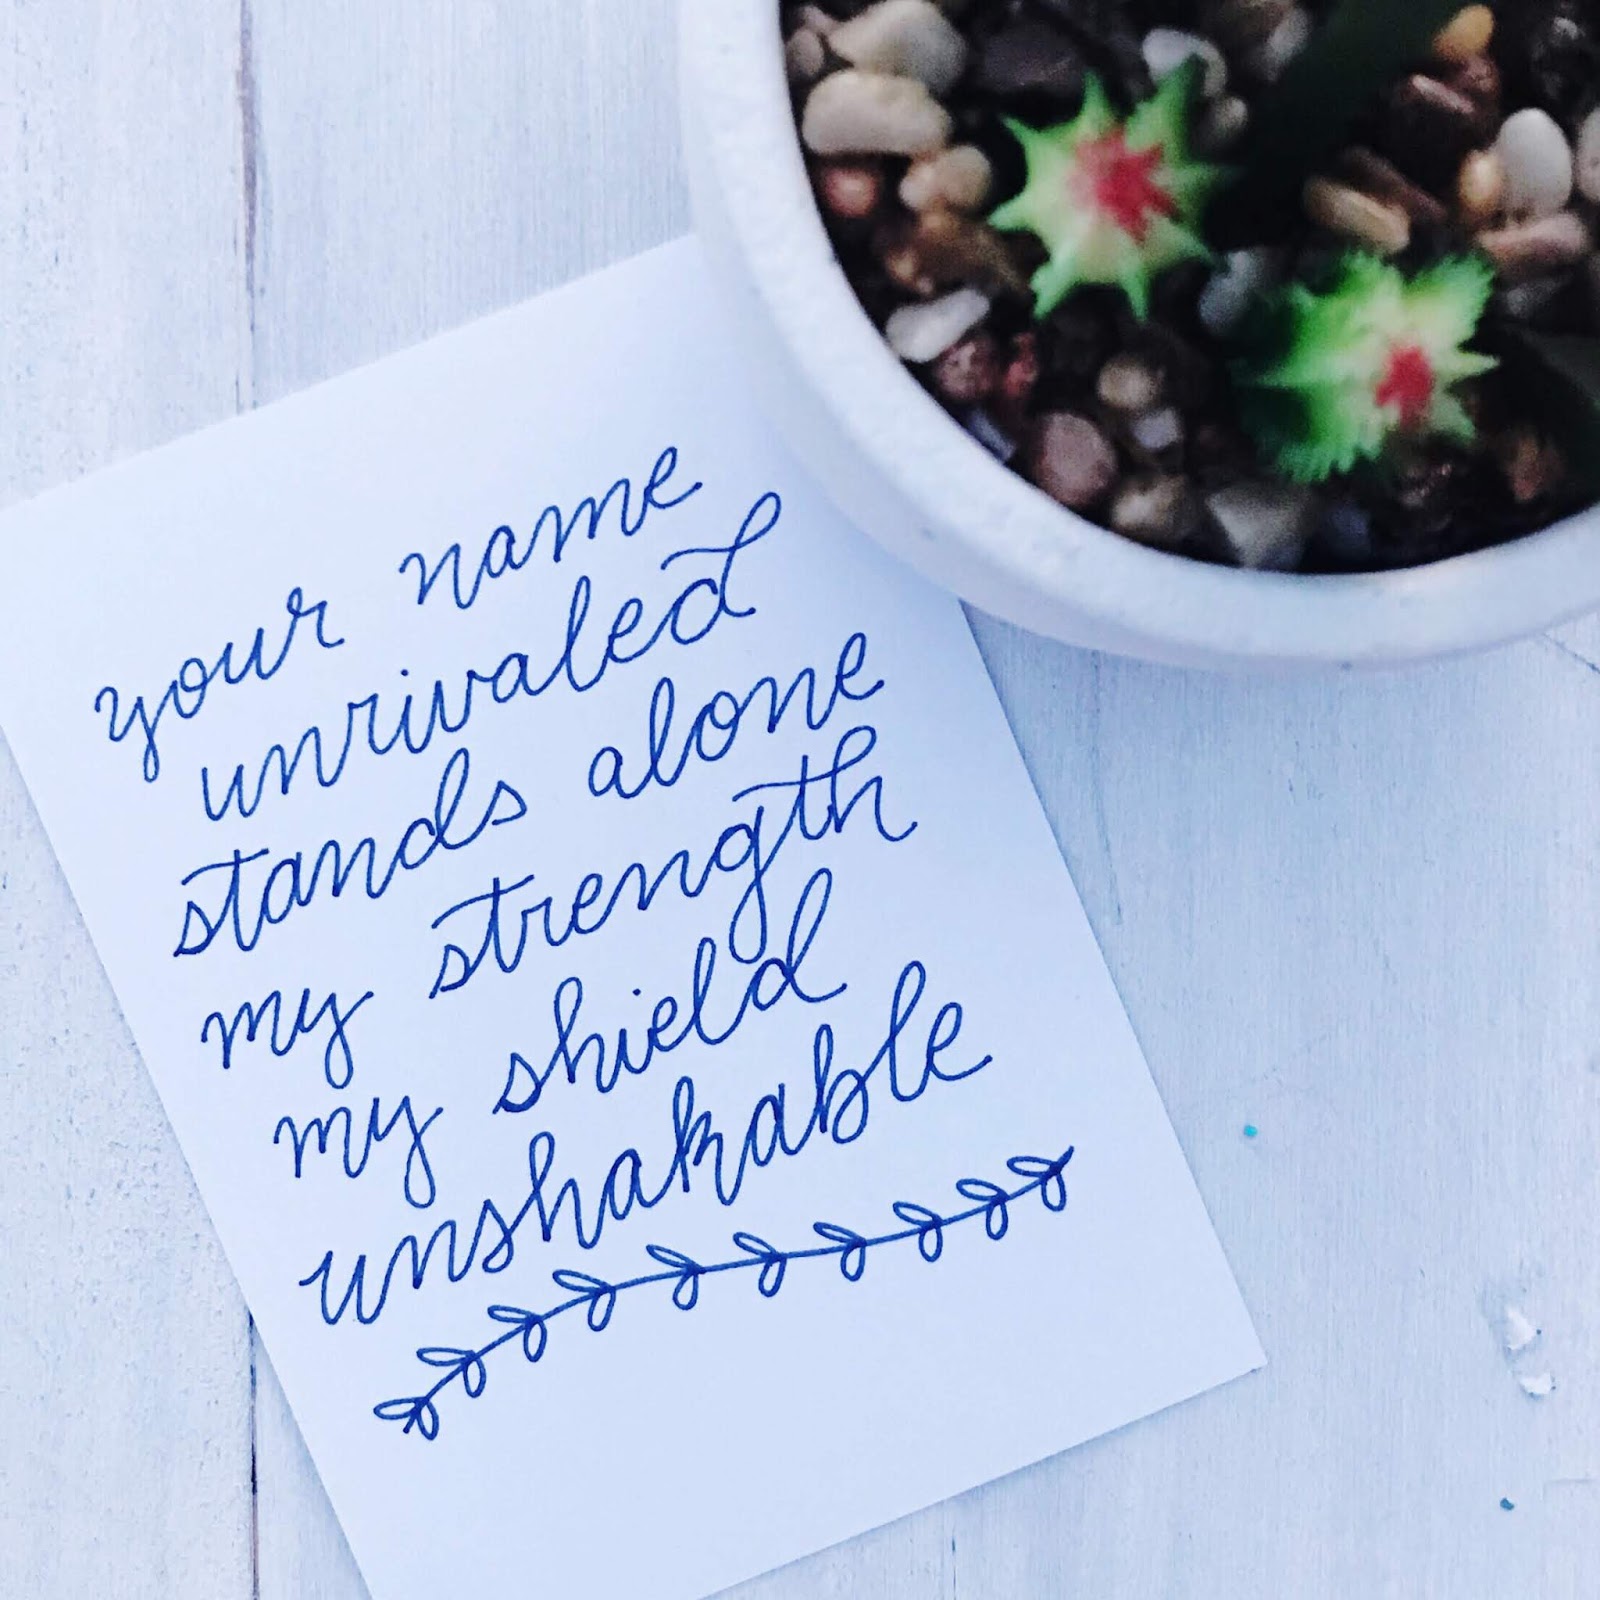 your name
unrivaled
stands alone
my strength
my shield
unshakable